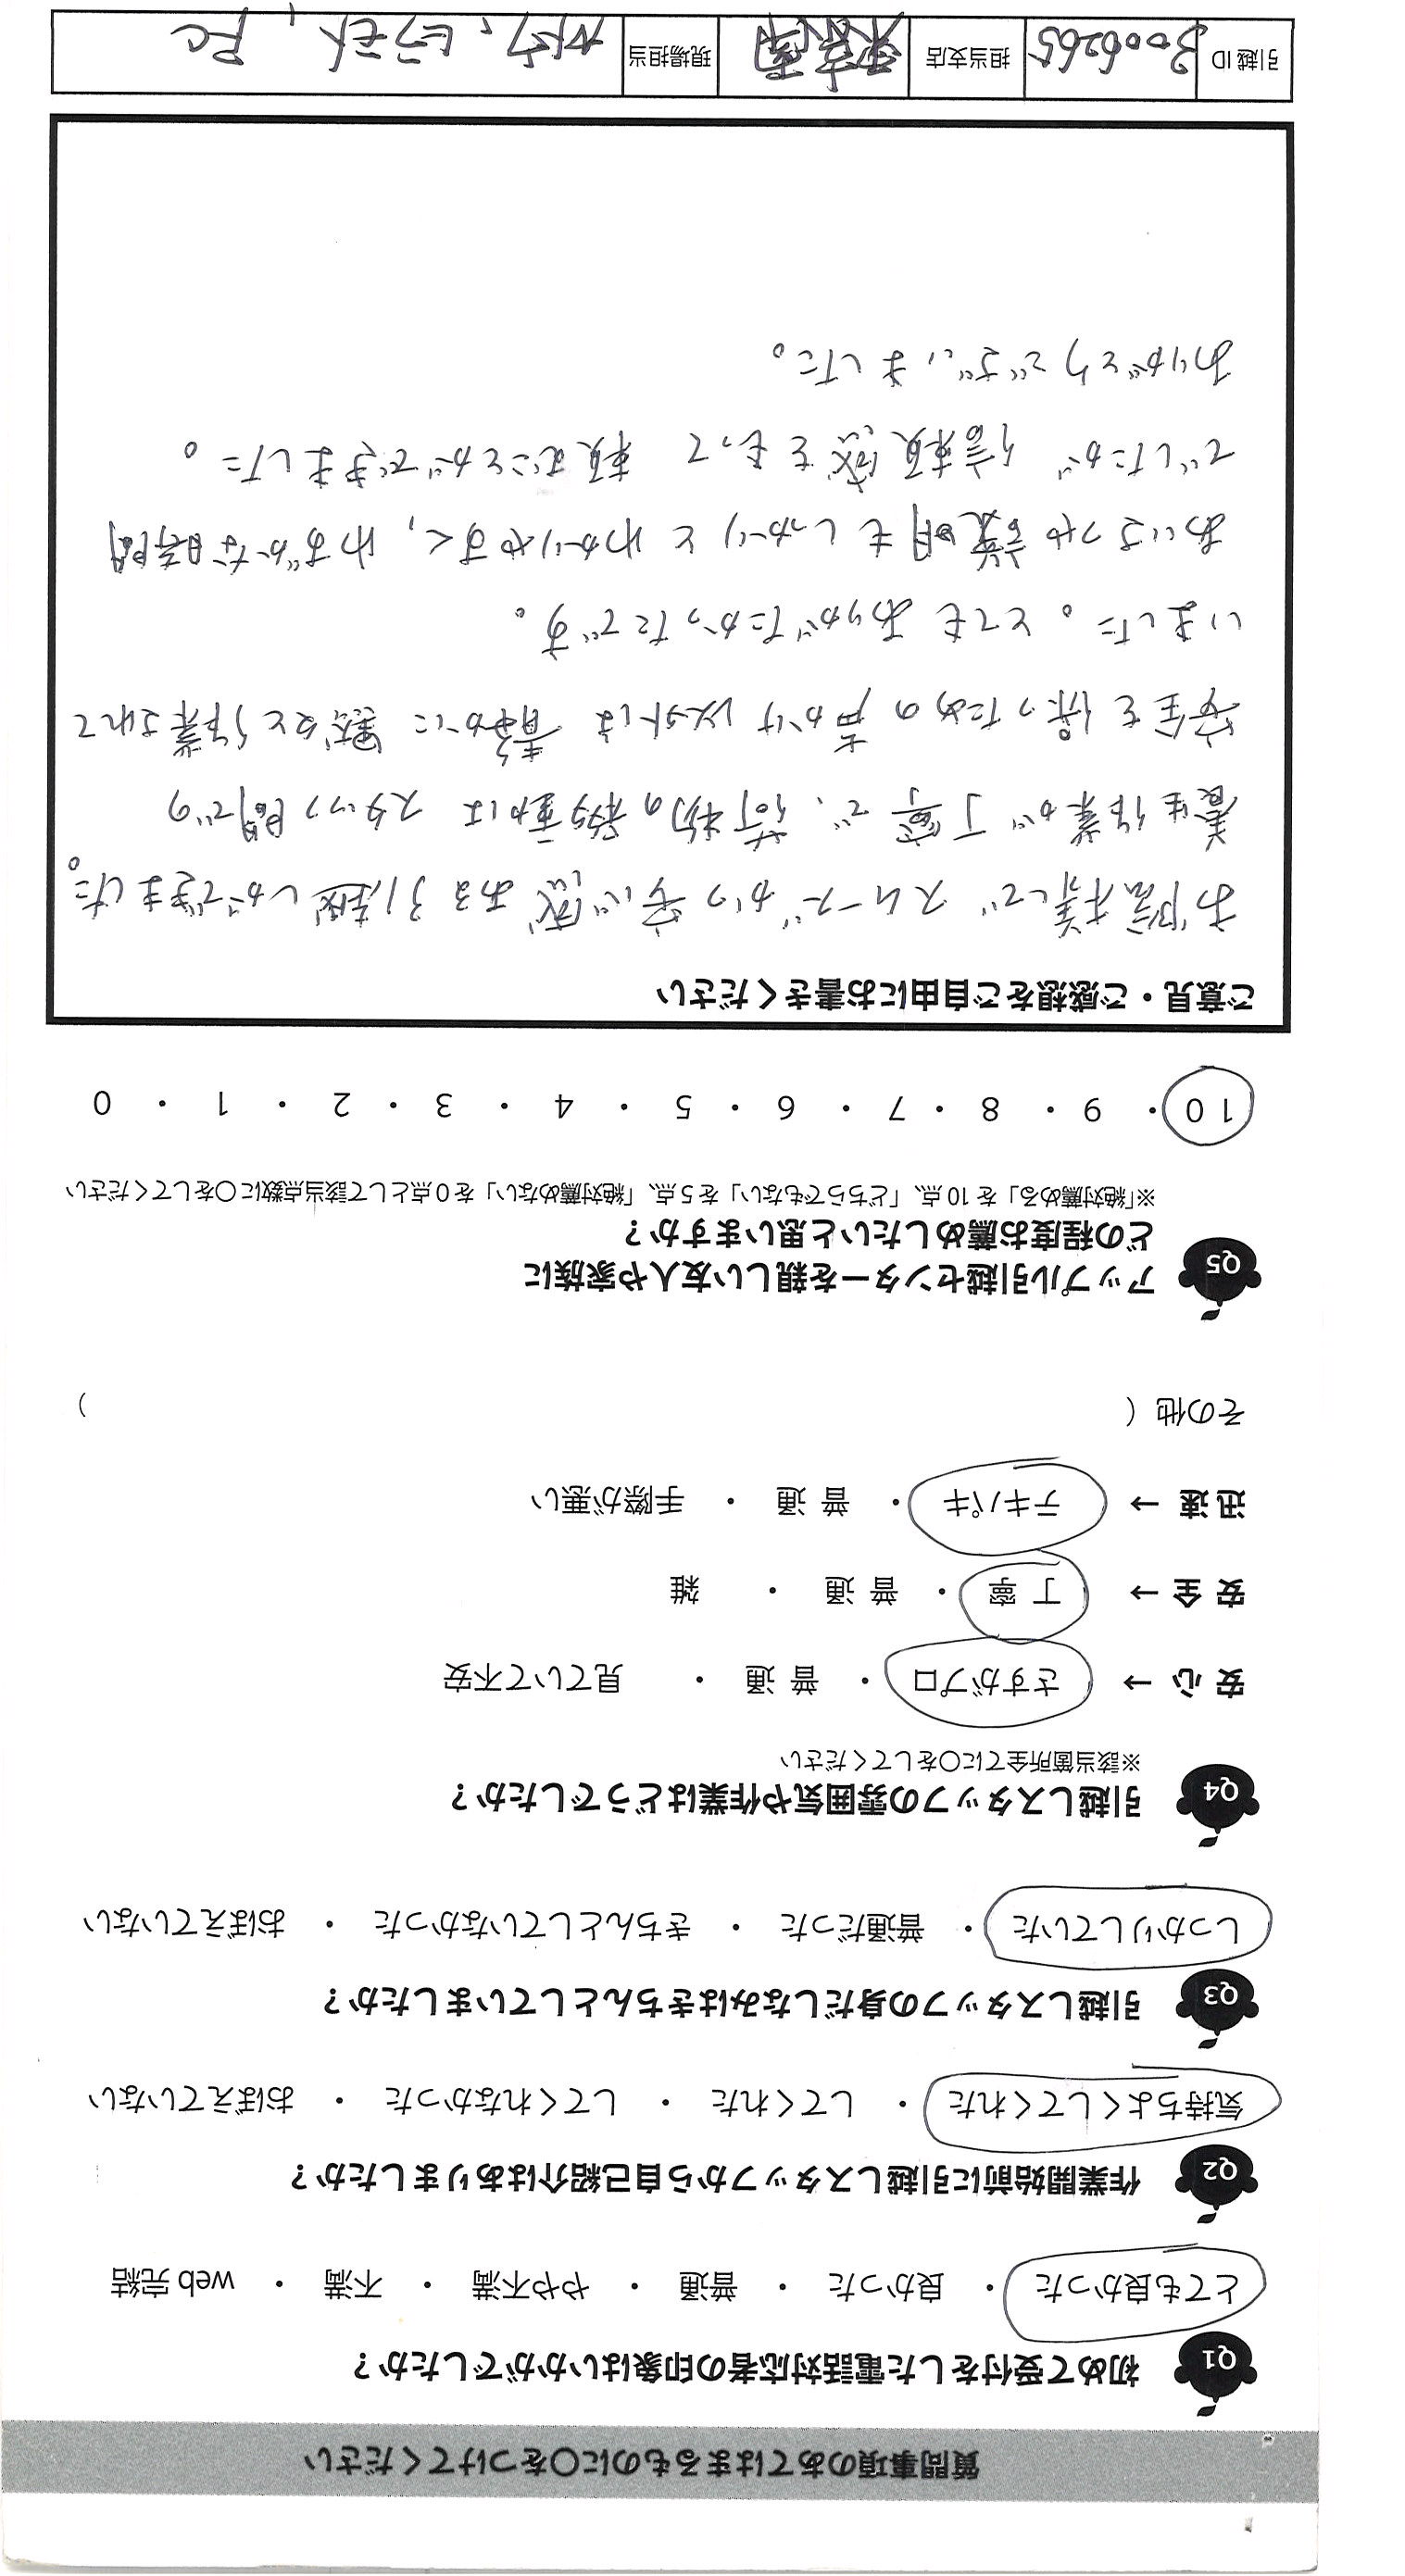 質問事項のあてはまるものに○をつけてください
Q1 初めて受付をした電話対応者の印象はいかがでしたか？
とても良かった ・ 良かった ・ 普通 ・ やや不満 ・ 不満 ・ web 完結
Q2 作業開始前に引越しスタッフから自己紹介はありましたか？
気持ちよくしてくれた ・ してくれた ・ してくれなかった ・ おぼえていない
Q3 引越しスタッフの身だしなみはきちんとしていましたか？
しっかりしていた ・ 普通だった ・ きちんとしていなかった ・ おぼえていない
Q4 引越しスタッフの雰囲気や作業はどうでしたか？
※該当箇所全てに○をしてください
安 心 → さすがプロ ・ 普 通 ・ 見ていて不安
安 全 → 丁 寧 ・ 普 通 ・ 雑
迅 速 → テキパキ ・ 普 通 ・ 手際が悪い
その他 （ ）
Q5 アップル引越センターを親しい友人や家族に
どの程度お薦めしたいと思いますか？
※「絶対薦める」を 10 点、「どちらでもない」を 5 点、「絶対薦めない」を 0 点として該当点数に○をしてください
10 ・ 9 ・ 8 ・ 7 ・ 6 ・ 5 ・ 4 ・ 3 ・ 2 ・ 1 ・ 0
ご意見・ご感想をご自由にお書きください
お陰様で スムーズかつ安心感ある引越しができました。
養生作業が丁寧で、荷物の移動は スタッフ間での
安全を保つための声かけ以外は 静かに黙々と作業されて
いました。とてもありがたかったです。
あいさつや説明もしっかりとわかりやすく、わずかな時間
でしたが 信頼感をもって 頼むことができました。
ありがとうございました。
引越 ID 3006265 担当支店 現場担当 、ヒラモト、